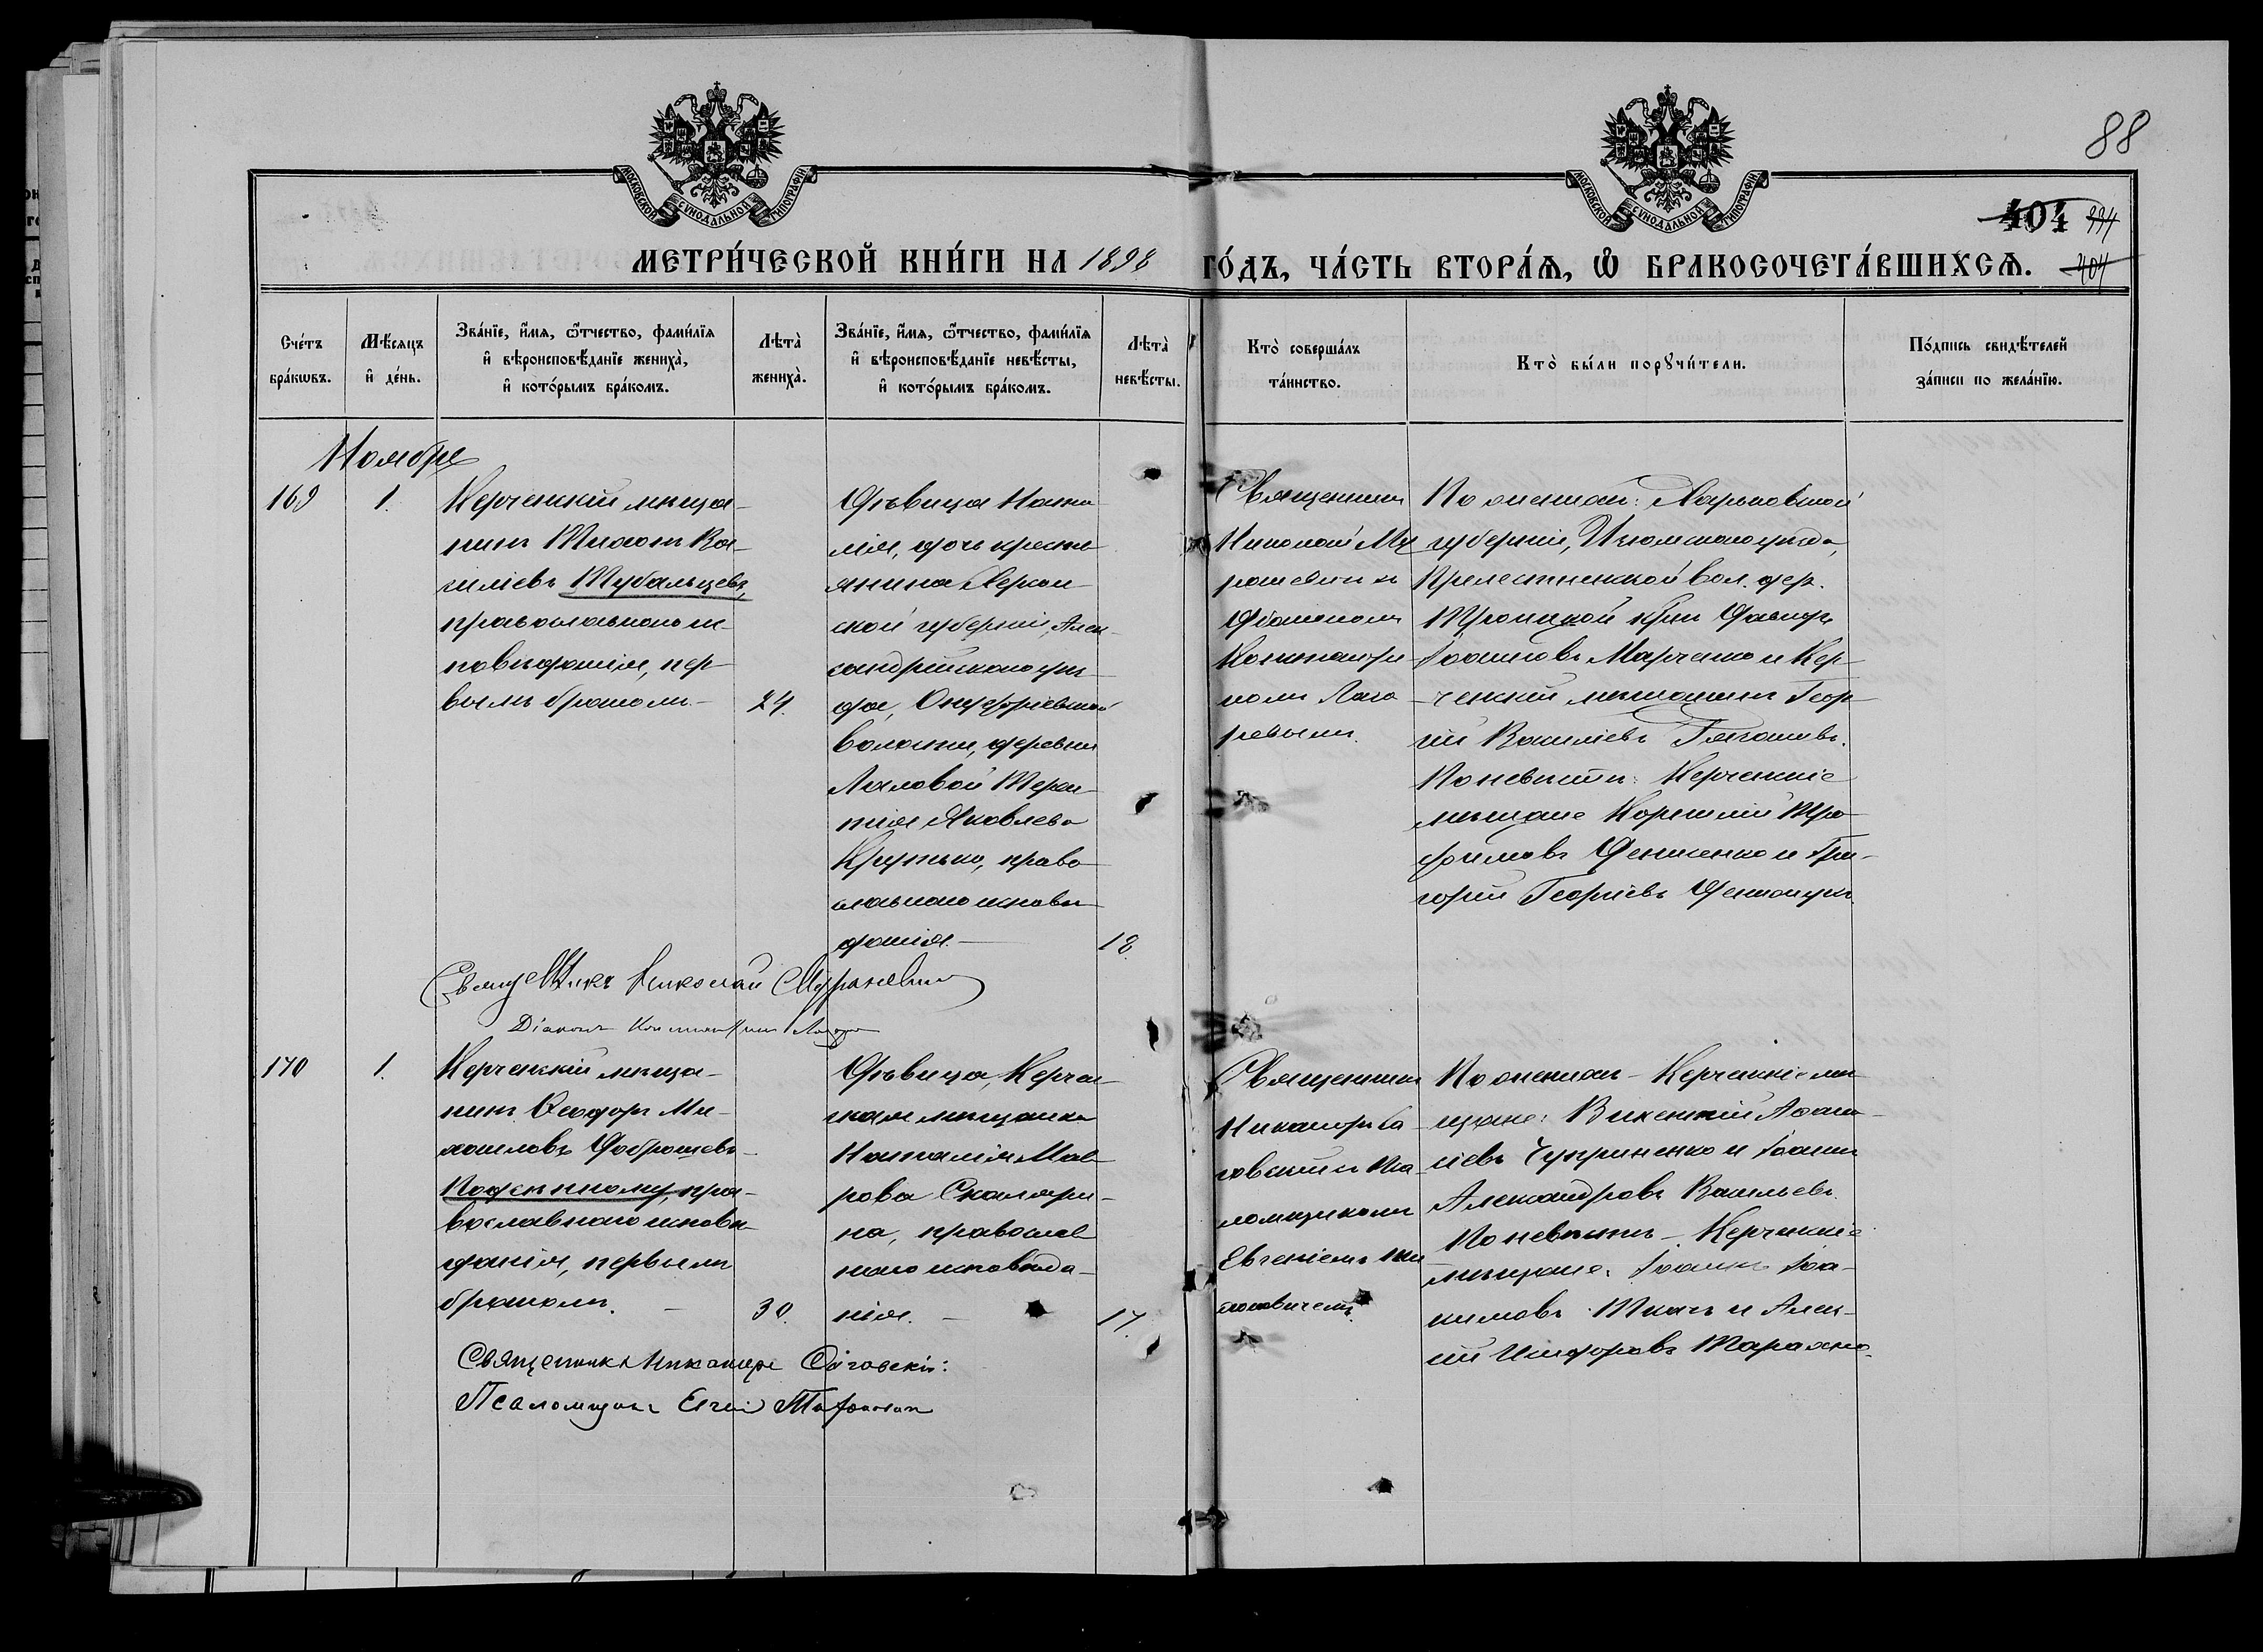 88
404 994
404
МОСКОВСКОЙ СѴНОДАЛЬНОЙ ТИПОГРАФІИ
МОСКОВСКОЙ СѴНОДАЛЬНОЙ ТИПОГРАФІИ
МЕТРИ́ЧЕСКОЙ КНИ́ГИ НА 1898 ГО́ДЪ, ЧА́СТЬ ВТОРА́Ѧ, Ѿ БРАКОСОЧЕТА́ВШИХСѦ.
Сче́тъ
бра́кѡвъ.
Мѣ́сяцъ
и҆ де́нь.
Зва́нїе, и҆́мя, ѻ҆́тчество, фами́лїя
и҆ вѣроисповѣ́данїе жениха̀,
и҆ кото́рымъ бра́комъ.
Лѣта̀
жениха̀.
Зва́нїе, и҆́мя, ѻ҆́тчество, фами́лїя
и҆ вѣроисповѣ́данїе невѣ́сты,
и҆ кото́рымъ бра́комъ.
Лѣта̀
невѣ́сты.
Кто̀ соверша́лъ
та́инство.
Кто̀ бы́ли порꙋчи́тели.
По́дпись свидѣ́телей
за́писи по жела́нїю.
Ноябре
169
1.
Керченскій мѣща-
нинъ Тихонъ Ва-
силіевъ Тубальцевъ,
православнаго ис-
повѣданія, пер-
вымъ бракомъ.-
24.
Дѣвица Ната-
лія, дочь кресть-
янина Херсон-
ской губерніи, Алек-
сандрійскаго уѣз-
да, Онуфріевской
волости, деревни
Лиловой Терен-
тія Яковлева
Крутько, право-
славнаго исповѣ-
данія.-
18
Священникъ
Николай Му
рошевичъ
діакономъ
Константи-
номъ Лаза
ревымъ.
По женихѣ: Харьковской
губерніи, Изюмскаго уѣзда,
Прелестненской вол. дер.
Троицкой крест. Давидъ
Іоанновъ Марченко и Кер-
ченскій мѣщанинъ Геор-
гій Василіевъ
По невѣстѣ: Керченскіе
мѣщане Корнилій Тро-
фимовъ Денисенко и Гри-
горій Георгіевъ
Священникъ Николай
Діаконъ Константинъ
170
1.
Керченскій мѣща-
нинъ Ѳеодоръ Ми-
хаиловъ Доброшевъ-
пра-
вославнаго исповѣ-
данія, первымъ
бракомъ. -
30.
Дѣвица, Керчен-
ская мѣщанка
Наталія Мав-
рова Скамари-
на, православ
наго исповѣда-
нія. -
17.
Священникъ
Никаноръ Са-
говскій съ Пса-
ломщикомъ
Евгеніемъ Ти
моновичемъ.
По женихѣ - Керченскіе мѣ-
щане: Викентій Афана-
сіевъ Чуприненко и Іоаннъ
Александровъ Васильевъ.
По невѣстѣ - Керченскіе
мѣщане: Іоаннъ Іоа-
кимовъ Ткачъ и Алек-
сій Исидоровъ Тарахно.
Священникъ Никаноръ Саговскій:
Псаломщикъ Евгеній